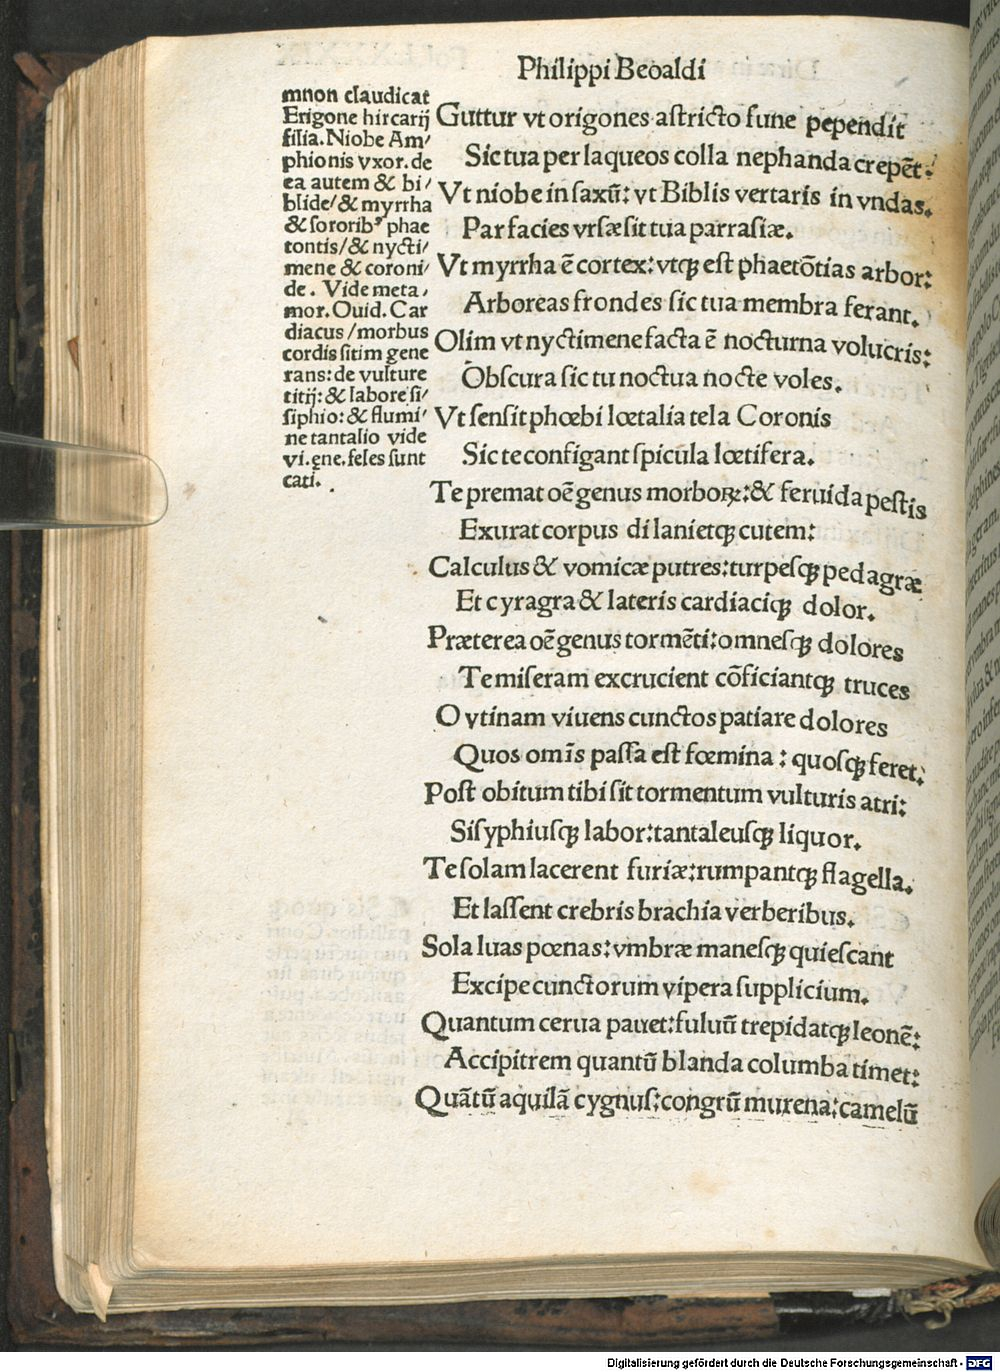 Philippi Beoaldi
mnon claudicat
Erigone hircarij
filia. Niobe Am/
phionis vxor. de
ea autem & bi/
blide/ & myrrha
& sororibꝰ phae
tontis/ & nycti/
mene & coroni/
de. Vide meta/
mor. Ouid. Car
diacus/morbus
cordis sitim gene
rans: de vulture
titij: & labore si/
siphio: & flumi/
ne tantalio vide
vi. ęne. feles sunt
cati.
Guttur vt origones astricto fune pependit
Sic tua per laqueos colla nephanda crepēt:
Vt niobe in saxū: vt Biblis vertaris in vndas.
Par facies vrsæ sit tua parrasiæ.
Vt myrrha ē cortex: vtqꝫ est phaetōtias arbor:
Arboreas frondes sic tua membra ferant.
Olim vt nyctimene facta ē nocturna volucris:
Obscura sic tu noctua nocte voles.
Vt sensit phœbi lœtalia tela Coronis
Sic te configant spicula lœtifera.
Te premat oē genus morboꝝ: & feruida pestis
Exurat corpus dilanietqꝫ cutem:
Calculus & vomicæ putres: turpesqꝫ pedagræ
Et cyragra & lateris cardiaciqꝫ dolor.
Præterea oē genus tormēti: omnesqꝫ dolores
Te miseram excrucient cōficiantqꝫ truces
O vtinam viuens cunctos patiare dolores
Quos omīs passa est fœmina: quosqꝫ feret:
Post obitum tibi sit tormentum vulturis atri:
Sisyphiusqꝫ labor: tantaleusqꝫ liquor.
Te solam lacerent furiæ: rumpantqꝫ flagella.
Et lassent crebris brachia verberibus.
Sola luas pœnas: vmbræ manesqꝫ quiescant
Excipe cunctorum vipera supplicium.
Quantum cerua pauet: fuluū trepidatqꝫ leonē:
Accipitrem quantū blanda columba timet:
Quātū aquilā cygnus: congrū murena: camelū
Digitalisierung gefördert durch die Deutsche Forschungsgemeinschaft - DFG